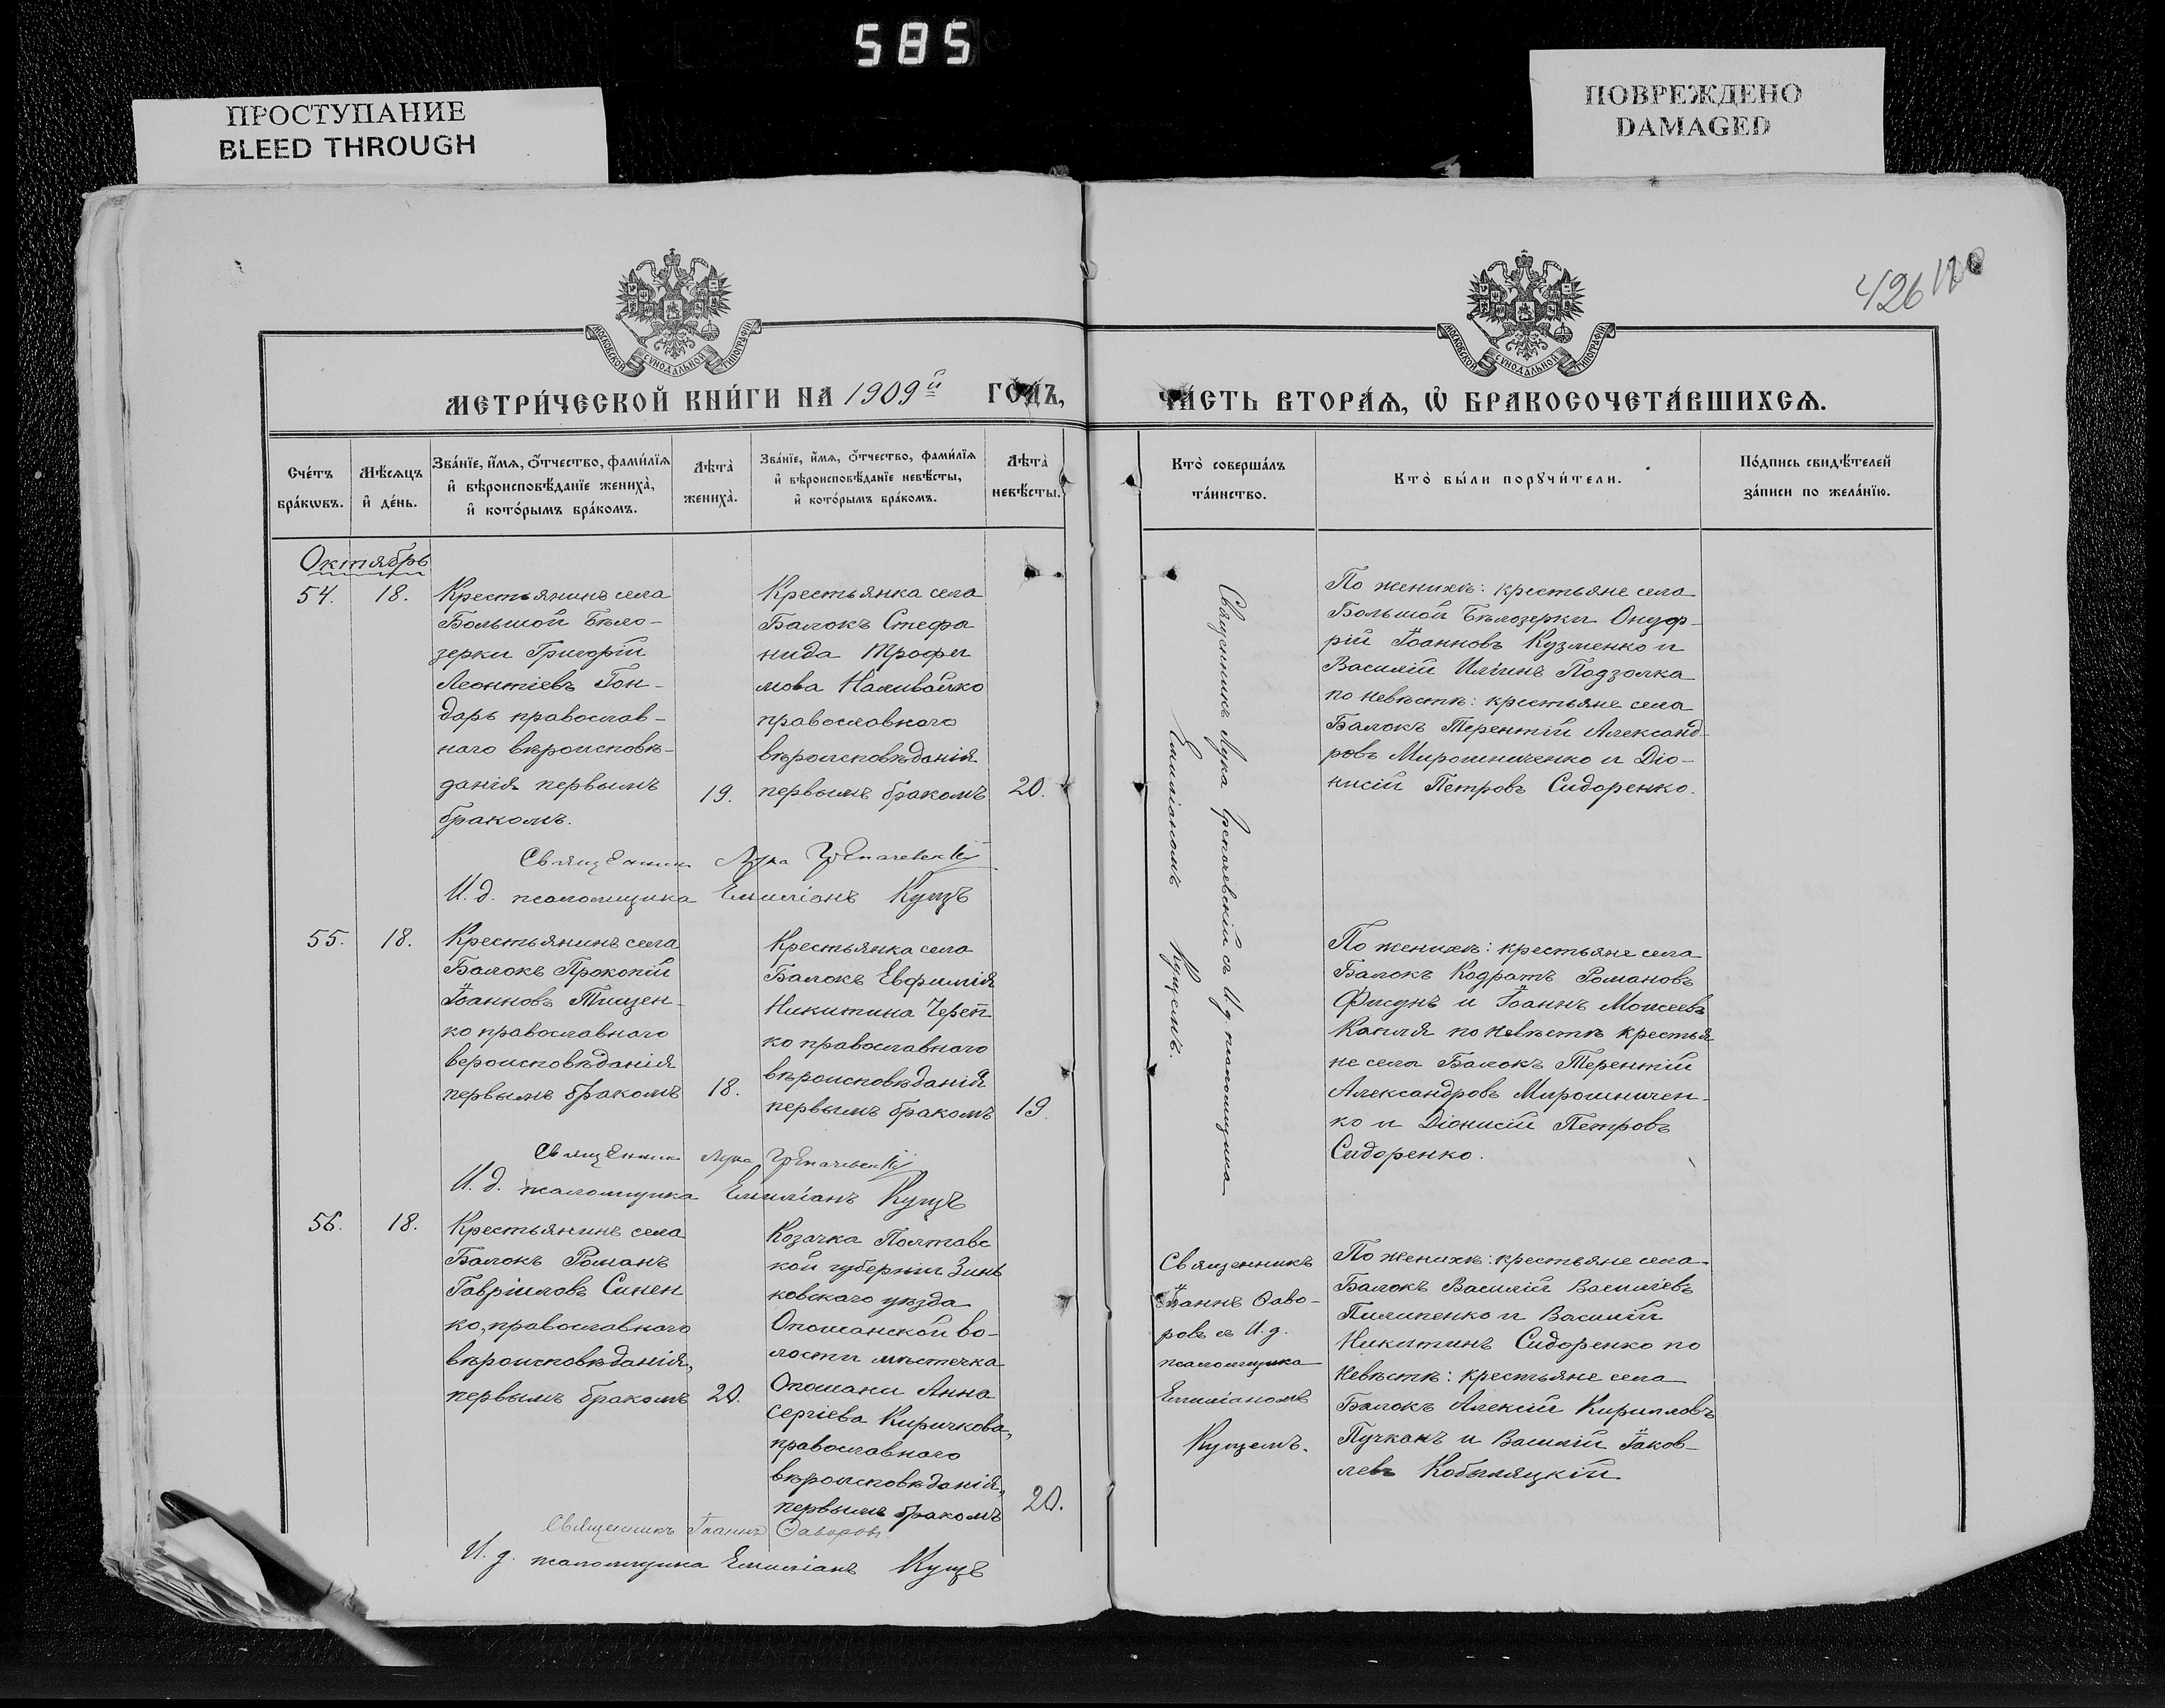 585
ПРОСТУПАНИЕ
BLEED THROUGH
ПОВРЕЖДЕНО
DAMAGED
426
МОСКОВСКОЙ СѴНОДАЛЬНОЙ ТИПОГРАФІИ
МОСКОВСКОЙ СѴНОДАЛЬНОЙ ТИПОГРАФІИ
МЕТРИ́ЧЕСКОЙ КНИ́ГИ НА 1909й ГО́ДЪ,
ЧА́СТЬ ВТОРА́Ѧ, Ѡ҆ БРАКОСОЧЕТА́ВШИХСѦ.
Сче́тъ
бра́кѡвъ.
Мѣ́сѧцъ
и҆ де́нь.
Зва́нїе, и҆́мѧ, ѻ҆́тчество, фами́лїѧ
и҆ вѣроисповѣ́данїе жениха̀,
и҆ кото́рымъ бра́комъ.
Лѣта̀
жениха̀.
Зва́нїе, и҆́мѧ, ѻ҆́тчество, фами́лїѧ
и҆ вѣроисповѣ́данїе невѣ́сты,
и҆ кото́рымъ бра́комъ.
Лѣта̀
невѣ́сты.
Кто̀ соверша́лъ
та́инство.
Кто̀ бы́ли порꙋчи́тели.
По́дпись свидѣ́телей
за́писи по жела́нїю.
Октябрь
54.
18.
Крестьянинъ села
Большой Бѣло-
зерки Григорій
Леонтіевъ Гон-
дарь православ-
наго вѣроисповѣ-
данія первымъ
бракомъ.
19.
Крестьянка села
Балокъ Стефа
нида Трофи
мова Наливайко
православнаго
вѣроисповѣданія
первымъ бракомъ
20.
Священникъ Лука Гр
И. д. псаломщика Емиліанъ Кущъ
Священникъ Лука съ И.д. псаломщика
Емиліаномъ Кущемъ.
По женихѣ: крестьяне села
Большой Бѣлозерки Онуф-
рій Іоанновъ Кузменко и
Василій Иліинъ Подзолка
по невѣстѣ: крестьяне села
Балокъ Терентій Александ-
ровъ Мирошниченко и Діо-
нисій Петровъ Сидоренко.
55.
18.
Крестьянинъ села
Балокъ Прокопій
Іоанновъ Тищен-
ко православнаго
вероисповѣданія
первымъ бракомъ
18.
Крестьянка села
Балокъ Евфимія
Никитина Череп-
ко православнаго
вѣроисповѣданія
первымъ бракомъ
19.
Священникъ Лука
И. д. псаломщика Емиліанъ Кущъ
По женихѣ: крестьяне села
Балокъ Кодратъ Романовъ
Фисунъ и Іоаннъ Моисеевъ
Капля по невѣстѣ крестья
не села Балокъ Терентій
Александровъ Мирошничен-
ко и Діонисій Петровъ
Сидоренко.
56.
18.
Крестьянинъ села
Балокъ Романъ
Гавріиловъ Синен
ко, православнаго
вѣроисповѣданія,
первымъ бракомъ
20.
Козачка Полтавс
кой губерніи Зинь
ковскаго уѣзда
Опошанской во-
лости мѣстечка
Опошани Анна
Сергіева Киричкова,
православнаго
вѣроисповѣданія,
первымъ бракомъ
20.
Священникъ Іоаннъ Ѳаворовъ
И. д. псаломщика Емиліанъ Кущъ
Священникъ
Іоаннъ Ѳаво-
ровъ съ И. д.
псаломщика
Емиліаномъ
Кущемъ.
По женихѣ: крестьяне села
Балокъ Василій Василіевъ
Пилипенко и Василій
Никитинъ Сидоренко по
невѣстѣ: крестьяне села
Балокъ Алексій Кирилловъ
Пучканъ и Василій Іаков-
левъ Кобыляцкій